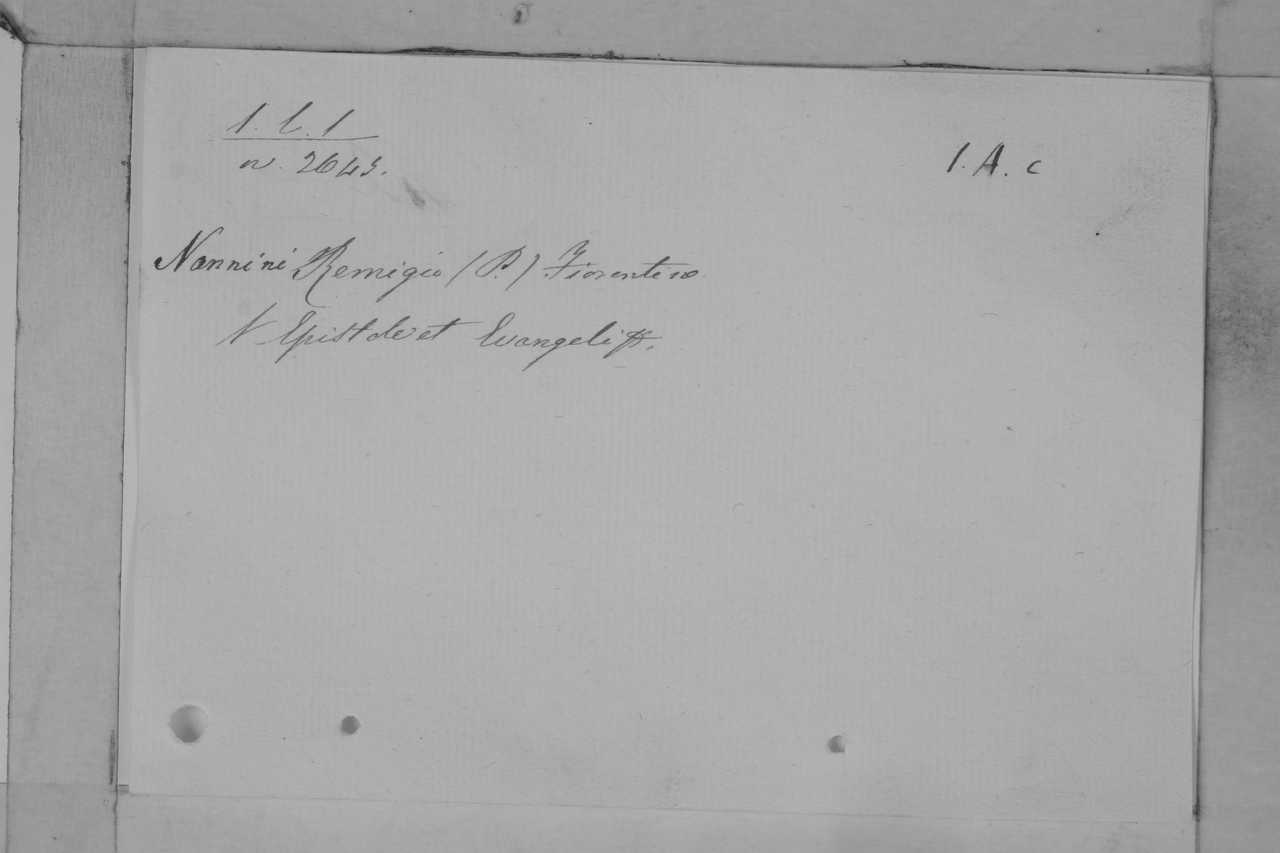 1. b. 1
n. 2645.
1. A. c
Nannini Remigio (P.) Fiorentino
Epistole et Evangeli